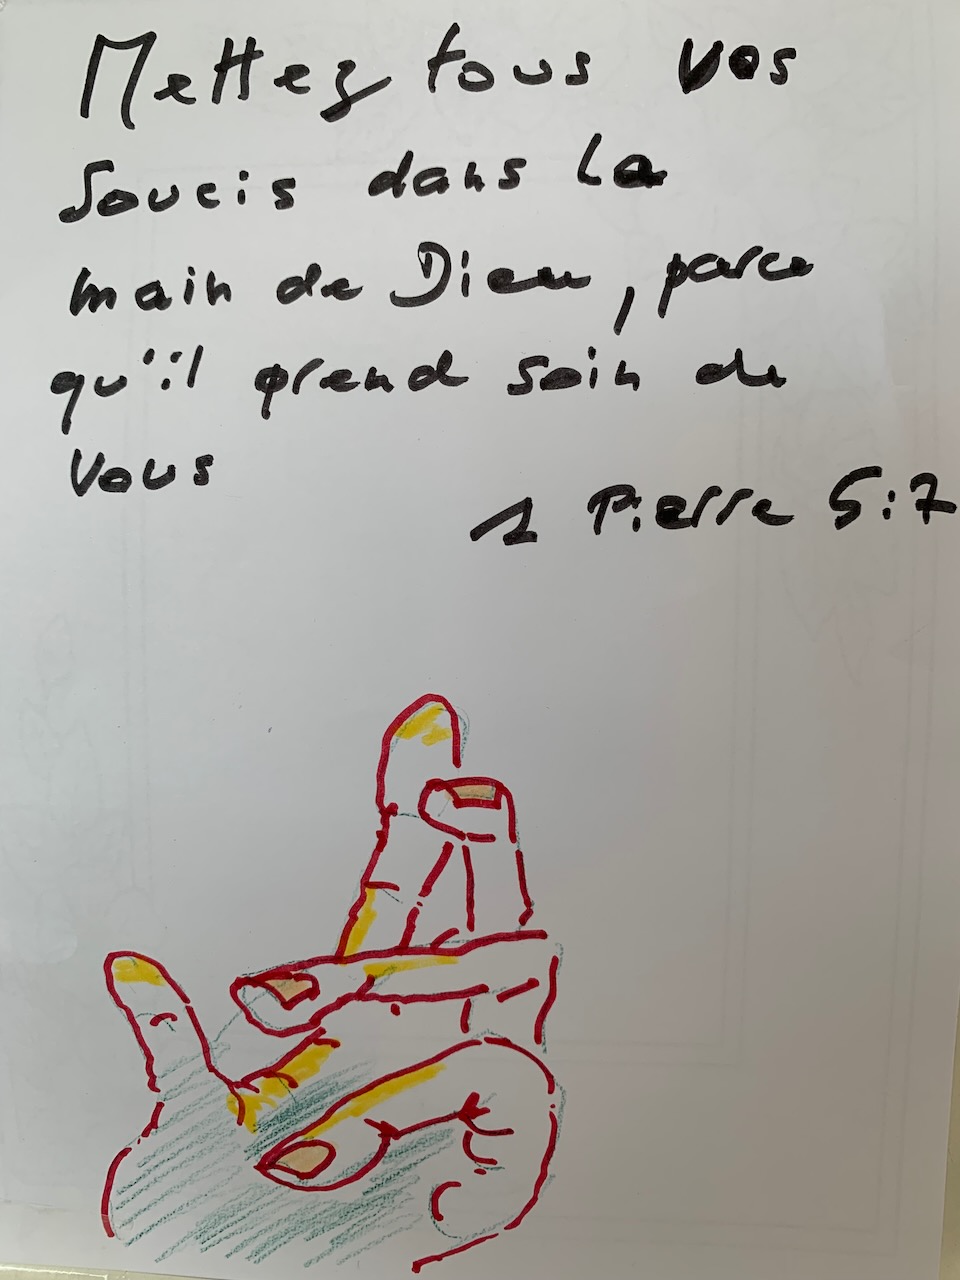 Mettez tous vos
soucis dans la
main de Dieu, parce
qu'il prend soin de
vous
1 Pierre 5:7